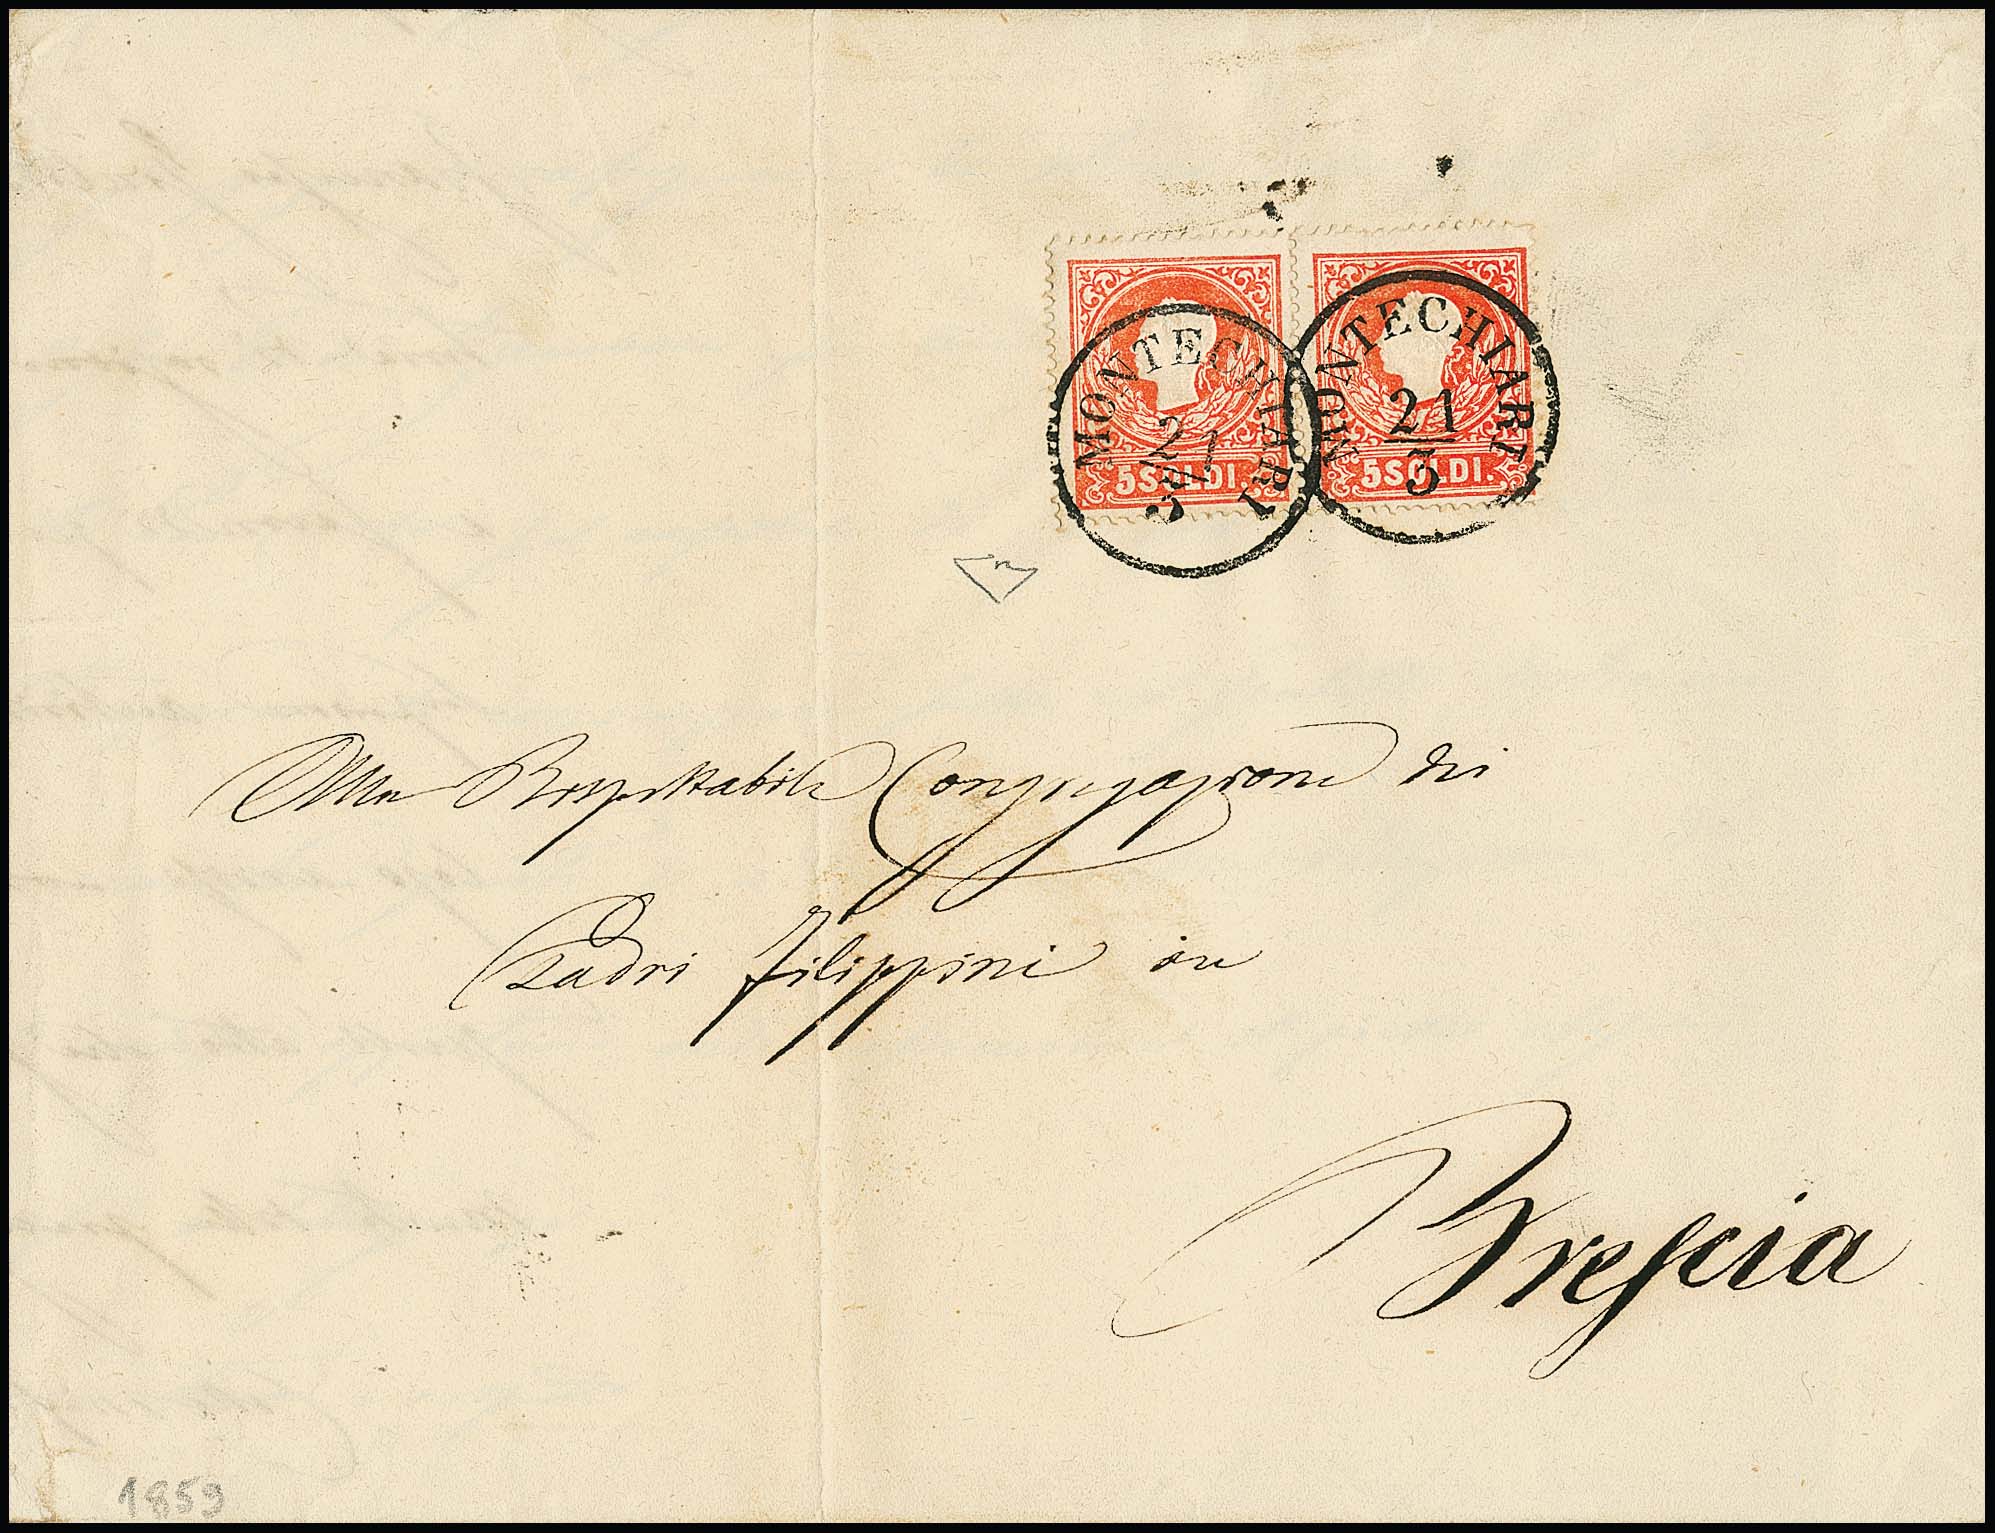 MONTECHIARI
21
3
5 SOLDI.
MONTECHIARI
21
3
5 SOLDI.
Alla Rispettabile Congregazione dei
Padri Filippini in
Brescia
1859